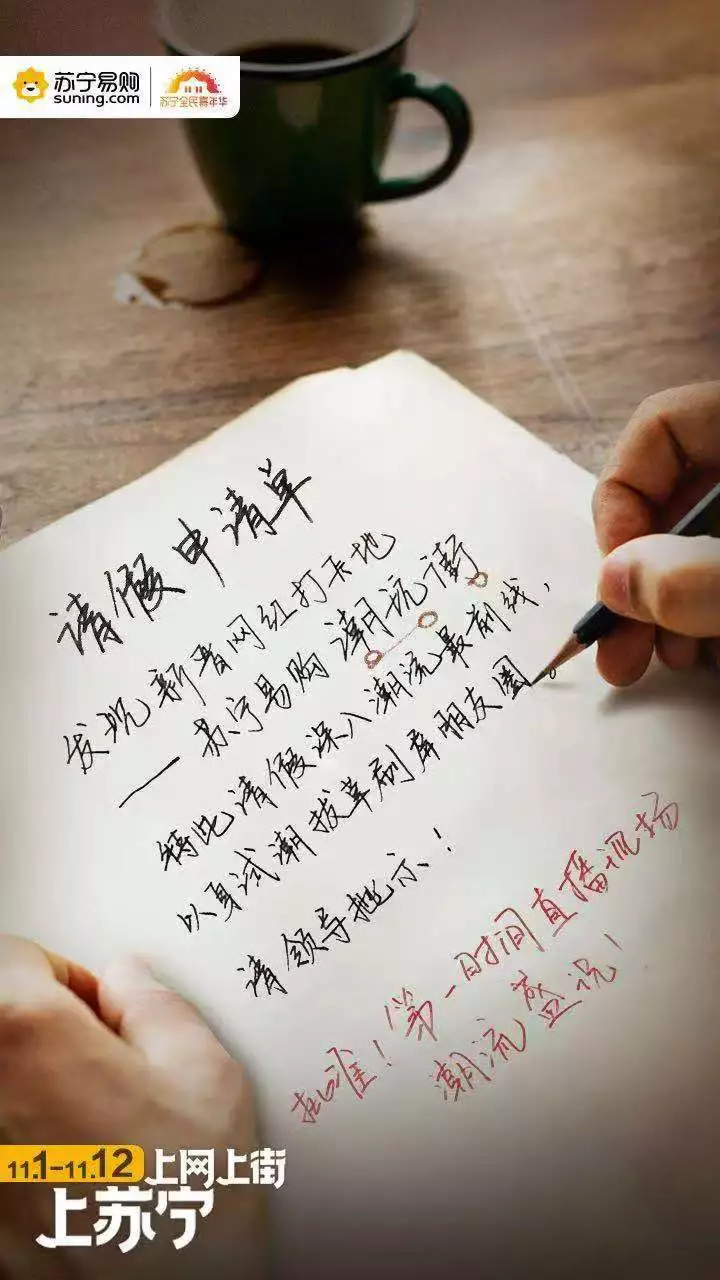 苏宁易购
suning.com
苏宁全民嘉年华
请假申请单
发现新晋网红打卡地
——苏宁易购潮流街
特此请假深入潮流最前线，
以身试潮拔草刷屏朋友圈。
请领导批示！
批准！第一时间直播现场
潮流盛况！
11.1-11.12 上网上街
上苏宁